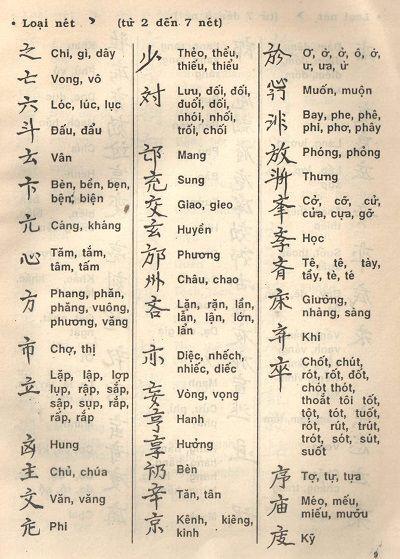 • Loại nét 丶 (từ 2 đến 7 nét)
之 Chi, gì, dây
亡 Vong, vô
六 Lóc, lúc, lục
斗 Đấu, đẩu
云 Vân
卞 Bèn, bển, bẹn,
bện, biện
亢 Càng, kháng
心 Tăm, tắm,
tâm, tấm
方 Phang, phăn,
phăng, vuông,
phương, văng
市 Chợ, thị
立 Lặp, lập, lợp
lụp, rập, sắp,
sập, sụp, rắp,
rấp, rắp
Hung
主 Chủ, chúa
文 Văn, văng
Phi
少 Thẻo, thểu,
thiếu, thiểu
対 Lưu, đối, đỗi,
đuổi, dối,
nhói, nhối,
trối, chối
邙 Mang
充 Sung
交 Giao, gieo
玄 Huyền
邡 Phương
州 Châu, chao
吝 Lặn, rặn, lần,
lẫn, lận, lớn,
lẩn
亦 Diệc, nhếch,
nhiếc, diếc
妄 Vòng, vọng
亨 Hanh
享 Hưởng
Bèn
辛 Tân, tân
京 Kênh, kiêng,
kinh
於 Ơ, ở, ở, ô, ớ,
ư, ưa, ứ
Muốn, muộn
非 Bay, phe, phê,
phi, phơ, phây
放 Phóng, phỏng
Thưng
Cở, cỡ, cử,
cửa, cựa, gỡ
斈 Học
斉 Tê, tề, tày,
tầy, tè, té
床 Giường,
nhàng, sàng
弃 Khí
卒 Chốt, chút,
rót, rốt, đốt,
chót thót,
thoắt tôi tốt,
tột, tót, tuốt,
rót, rút, trút,
trót, sót, sút,
suốt
序 Tợ, tự, tựa
庙 Méo, mếu,
miếu, mướu
庋 Kỹ
9